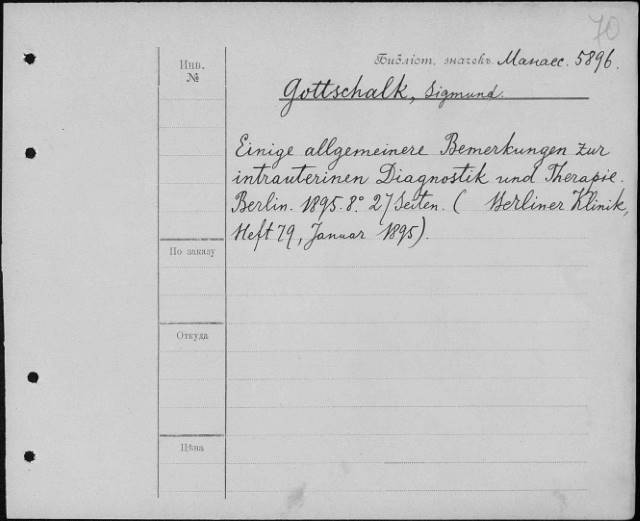 70
Библіот. значекъ Манаес. 5896.
Инв.
№
Gottschalk, Sigmund.
Einige allgemeinere Bemerkungen zur
intrauterinen Diagnostik und Therapie.
Berlin. 1895. 8.° 27 Seiten. ( Berliner Klinik,
Heft 79, Januar 1895).
По заказу
Откуда
Цѣна